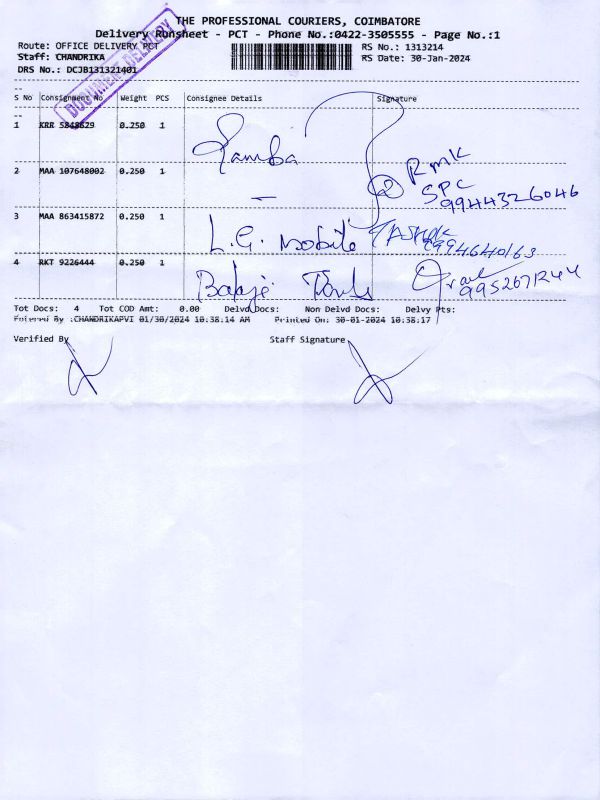 THE PROFESSIONAL COURIERS, COIMBATORE
Delivery Runsheet - PCT - Phone No.:0422-3505555 - Page No.:1
Route: OFFICE DELIVERY PCT
RS No.: 1313214
Staff: CHANDRIKA
RS Date: 30-Jan-2024
DRS No.: DCJB131321401
DOCUMENT DELIVERY
S No Consignment No Weight PCS Consignee Details Signature
1 KRR 5848629 0.250 1
2 MAA 107648002 0.250 1
RMK
SPC
9944326046
3 MAA 863415872 0.250 1 L.G. Mobile Ashok
9994640163
4 RKT 9226444 0.250 1 Balaji
9952671244
Tot Docs: 4 Tot COD Amt: 0.00 Delvd Docs: Non Delvd Docs: Delvy Pts:
Entered By :CHANDRIKAPVI 01/30/2024 10:38:14 AM Printed On: 30-01-2024 10:38:17
Verified By Staff Signature